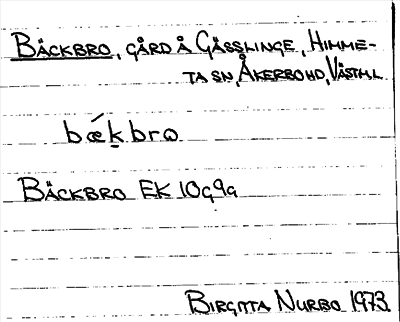 BÄCKBRO, GÅRD Å GÄSSLINGE, HIMME-
TA SN, ÅKERBO HD, VÄSTML
bǽkbro
BÄCKBRO EK 10G9a
BIRGITTA NURBO 1973